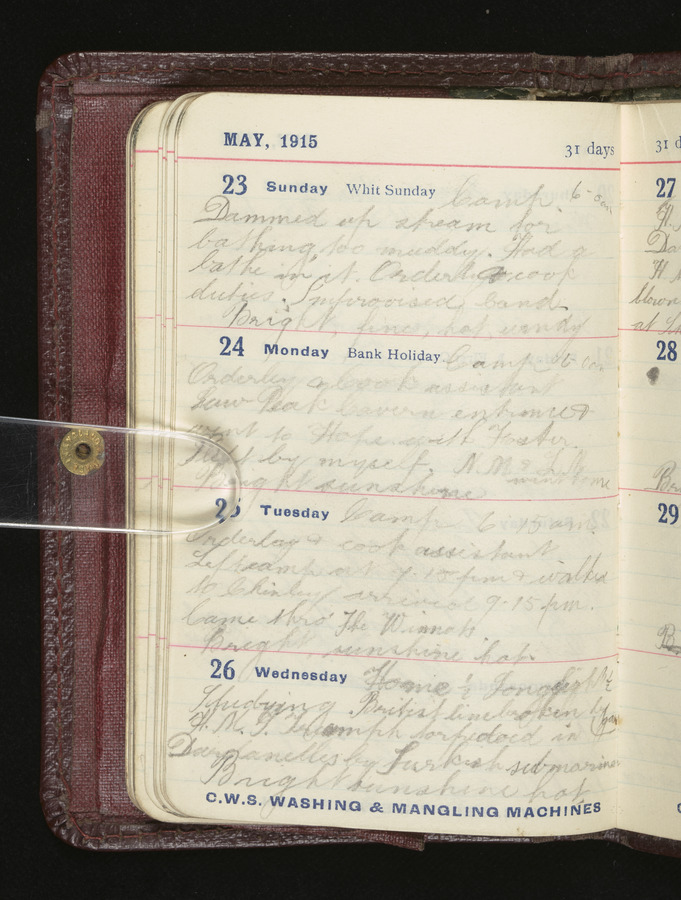 MAY, 1915 31 days
23 Sunday Whit Sunday Camp 6-
Dammed up stream for
bathing, too muddy. Had a
bathe in it. Orderly & cook
duties. Improvised band
Bright, fine, hot, windy
24 Monday Bank Holiday Camp 6
Orderly & Cook assistant
Saw Peak Cavern entrance &
went to Hope with Foster.
by myself. N.M. &
went home
Bright sunshine
25 Tuesday Camp 6-15 am.
Orderly & cook assistant
Left camp at 7-15 pm & walked
to Chinley arrived 9-15 pm.
Came thro' The Winnats
Bright, sunshine hot
26 Wednesday Home
Studying. British line broken by
H.M.S. Triumph torpedoed in
Dardanelles by Turkish submarine
Bright sunshine hot.
C.W.S. WASHING & MANGLING MACHINES
31 d
27
H
blown
at
28
Br
29
B